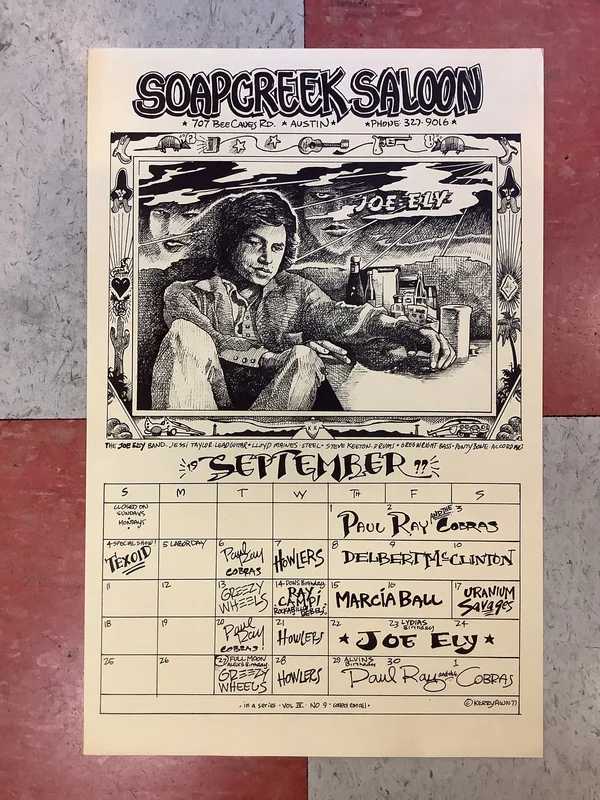 SOAPCREEK SALOON
★ 707 BEE CAVES RD. ★ AUSTIN ★ PHONE 327-9016 ★
JOE ELY
THE JOE ELY BAND... JESSI TAYLOR · LEAD GUITAR · LLOYD MAINES · STEEL · STEVE KEETON · DRUMS · GREG WRIGHT · BASS · PONTY BONE · ACCORDIAN
19 SEPTEMBER 77
S M T W TH F S
CLOSED ON SUNDAYS MONDAYS
1 2 3
PAUL RAY AND THE COBRAS
4 SPECIAL SHOW! TEXOID
5 LABOR DAY
6 Paul Ray COBRAS
7 HOWLERS
8 9 10
DELBERT McCLINTON
11
12
13 GREEZY WHEELS
14 DON'S Birthday RAY CAMPI ROCKABILLY REBELS
15 16
MARCIA BALL
17 URANIUM SAVAGES
18
19
20 Paul Ray COBRAS!
21 HOWLERS
22 23 LYDIAS Birthday 24
★ JOE ELY ★
25
26
27 FULL MOON ALEX'S Birthday GREEZY WHEELS
28 HOWLERS
29 ALVINS Birthday 30 1
Paul Ray and the COBRAS
· in a series · VOL III · NO 9 · collect em all ·
© KERRY AWN 77